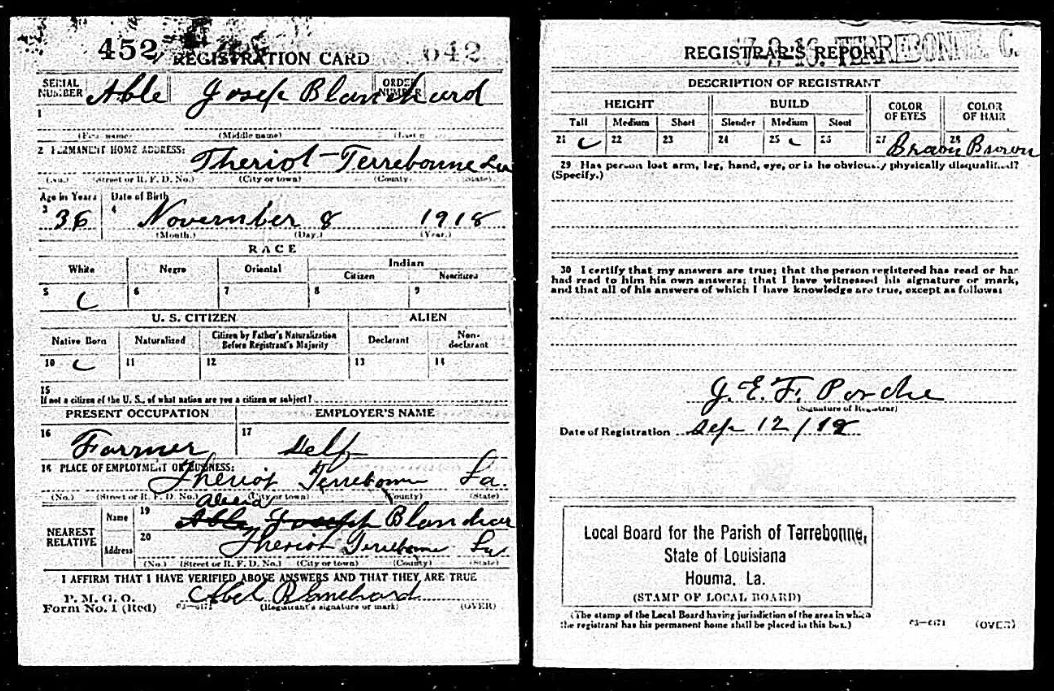 452 642
REGISTRATION CARD
SERIAL NUMBER Able Josep Blanchard ORDER NUMBER
1
(First name) (Middle name) (Last
2 PERMANENT HOME ADDRESS: Theriot - Terrebonne La
(No.) (Street or R. F. D. No.) (City or town) (County) (State)
Age in Years Date of Birth
3 36 4 November 8 1918
(Month.) (Day.) (Year.)
RACE
White Negro Oriental Indian
Citizen Noncitizen
5 6 7 8 9
U. S. CITIZEN ALIEN
Native Born Naturalized Citizen by Father's Naturalization Before Registrant's Majority Declarant Non-declarant
10 11 12 13 14
15
If not a citizen of the U. S., of what nation are you a citizen or subject?
PRESENT OCCUPATION EMPLOYER'S NAME
16 Farmer 17 Self
18 PLACE OF EMPLOYMENT OR BUSINESS:
Theriot Terrebonne La.
(No.) (Street or R. F. D. No.) (City or town) (County) (State)
NEAREST RELATIVE Name 19 Able Joseph Blanchar
Address 20 Theriot Terrebonne La.
(No.) (Street or R. F. D. No.) (City or town) (County) (State)
I AFFIRM THAT I HAVE VERIFIED ABOVE ANSWERS AND THAT THEY ARE TRUE
P. M. G. O.
Form No. 1 (Red) 03—6171 Abel Blanchard
(Registrant's signature or mark) (OVER)
REGISTRAR'S REPORT
DESCRIPTION OF REGISTRANT
HEIGHT BUILD COLOR OF EYES COLOR OF HAIR
Tall Medium Short Slender Medium Stout
21 22 23 24 25 26 27 Brown 28 Brown
29 Has person lost arm, leg, hand, eye, or is he obviously physically disqualified?
(Specify.)
30 I certify that my answers are true; that the person registered has read or has
had read to him his own answers; that I have witnessed his signature or mark,
and that all of his answers of which I have knowledge are true, except as follows:
J. E. F. Porche
(Signature of Registrar)
Date of Registration Sep 12/18
Local Board for the Parish of Tarrebonne,
State of Louisiana
Houma, La.
(STAMP OF LOCAL BOARD)
(The stamp of the Local Board having jurisdiction of the area in which
the registrant has his permanent home shall be placed in this box.)
03—6171 (OVER)